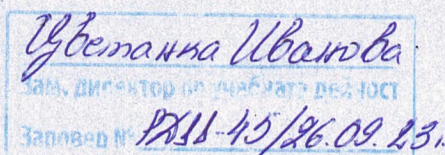 Цветанка Иванова
Зам. директор по учебната дейност
Заповед № РД11-45/26.09.23г.